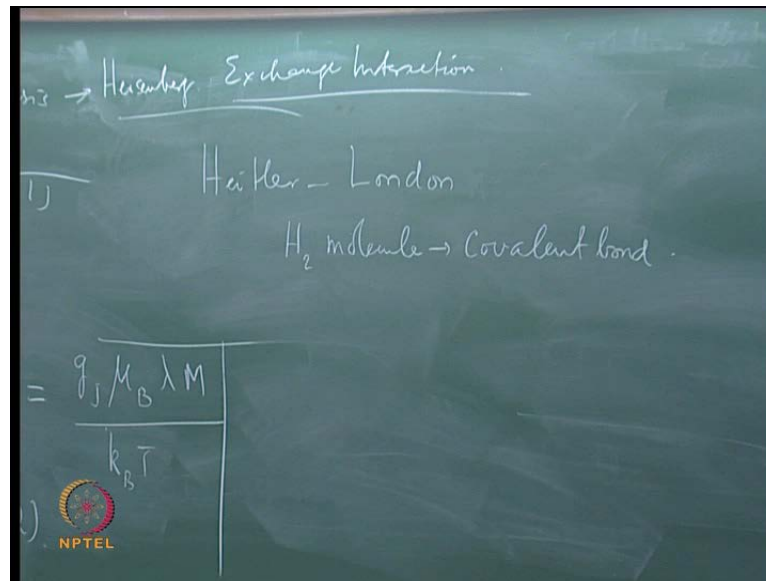 → Heisenberg Exchange Interaction.
IJ
Heitler - London
H₂ molecule → Covalent bond.
= g_J μ_B λ M
k_B T
).
NPTEL